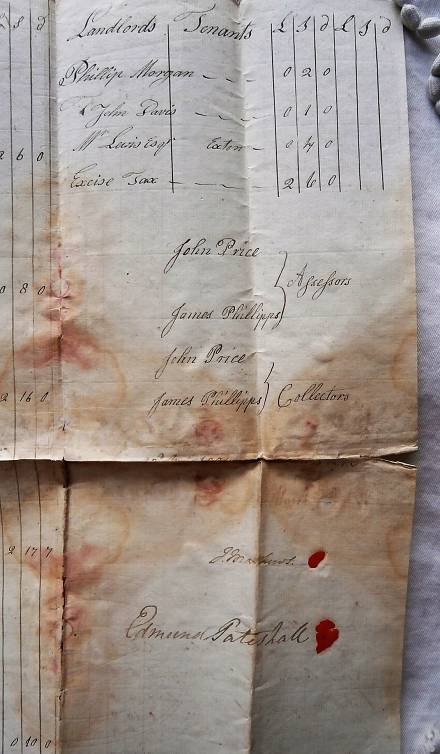 £ S d
Landlords Tenants £ S d £ S d
Phillip Morgan - - - 0 2 0
John Davis - - - 0 1 0
Mr Lewis Esqr - 0 4 0
2 6 0
Excise Tax - - - 2 6 0
John Price
0 8 0
Assessors
James Phillipps
John Price
2 16 0
James Phillipps Collectors
2 17 7
Edmund Pateshall
0 10 0